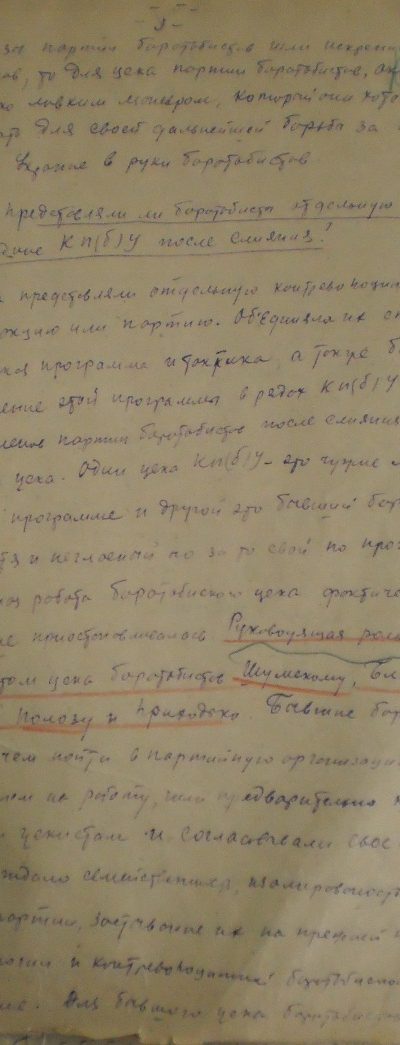 - 3 -
за партии боротьбистов шли искренн
ов, то для цека партии боротьбистов,
ко ловким маневром, который они хоте
ать для своей дальнейшей борьбы за
Украине в руки боротьбистов.
Представляли ли боротьбисты отдельную
КП(б)У после слияния?
представляли отдельную контрреволюцион
ракцию или партию. Объединяла их
программа и тактика, а также
ение этой программы в рядах КП(б)У
членов партии боротьбистов после слияния
цека. Один цека КП(б)У - это чужие
программе и другой это бывший
и негласный но за то свой по
работа боротьбистского цека фактиче
не приостанавливалась. Руководящая роль
этом цека боротьбистов Шумскому,
Полозу и Приходько. Бывшие
чем пойти в партийную организацию
на работу, шли предварительно
цекистам и согласовывали свое
ждало семейственность, изолированность
партии, заставание их на прежней
и контрреволюционной
Для бывшего цека боротьбистов